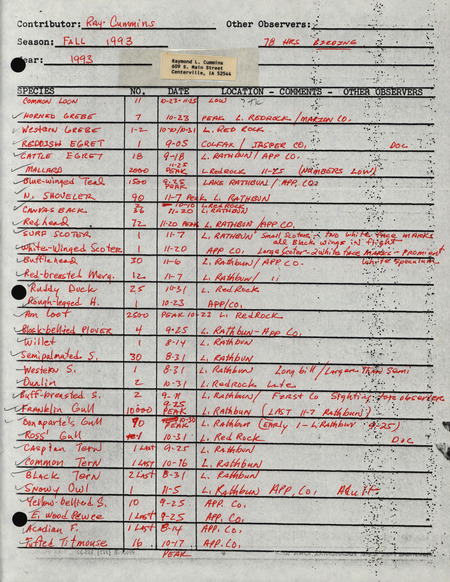 Contributor: Ray Cummins Other Observers:
Season: FALL 1993 78 HRS BIRDING
Year: 1993
Raymond L. Cummins
609 S. Main Street
Centerville, IA 52544
SPECIES NO. DATE LOCATION - COMMENTS - OTHER OBSERVERS
COMMON LOON 11 10-23-11-25 LOW
HORNED GREBE 7 10-23 PEAK L. REDROCK / MARION CO.
WESTERN GREBE 1-2 10-20/10-31 L. RED ROCK
REDDISH EGRET 1 9-05 COLFAX / JASPER CO, DOC
CATTLE EGRET 18 9-18 L. RATHBUN / APP CO.
MALLARD 2000 11-25 PEAK L REDROCK 11-25 (NUMBERS LOW)
Blue-winged Teal 1500 9-25 PEAK LAKE RATHBUN / APP. CO.
N. SHOVELER 90 11-7 PEAK L. RATHBUN
CANVASBACK 36 10-10 L. RED ROCK
11-20 L. RATHBUN
Redhead 72 11-20 PEAK L. RATHBUN / APP CO.
SURF SCOTER 11-7 L. RATHBUN Small Scoter - two white face marks
all Black wings in flight
White-Winged Scoter 1 11-20 APP CO. Large Scoter - 2 white face marks - prominent
white speculum
Bufflehead 30 11-6 L. RATHBUN / APP CO.
Red-breasted Merg. 12 11-7 L. Rathbun / 11
Ruddy Duck 25 10-31 L. Red Rock
Rough-legged H. 1 10-23 APP/CO,
Am Coot 2500 PEAK 10-22 L. REDROCK
Black-bellied PLOVER 4 9-25 L. Rathbun - App Co,
Willet 1 8-14 L. Rathbun
Semipalmated S. 30 8-31 L. Rathbun
Western S. 1 8-31 L. Rathbun Long bill / Larger Than Semi
Dunlin 2 10-31 L. Redrock Late
Buff-breasted S. 2 9-11 L. Rathbun /
Franklin Gull 10000 9-25 PEAK L. Rathbun (LAST 11-7 Rathbun)
Bonaparte's Gull 90 10-30 PEAK L. Rathbun (Early 1 - L. Rathbun 9-25)
Ross' Gull 1 10-31 L. Red Rock DOC
Caspian Tern 1 LAST 9-25 L. Rathbun
Common Tern 1 LAST 10-16 L. Rathbun
BLACK Tern 2 Last 8-31 L. Rathbun
Snowy Owl 1 11-5 L. Rathbun APP. CO, Adult
Yellow-bellied S. 10 9-25 APP. CO,
E. Wood Pewee 1 Last 9-25 APP. Co,
Acadian F. 1 LAST 8-14 APP. Co,
Tufted Titmouse 16 10-17 APP. Co,
PEAK